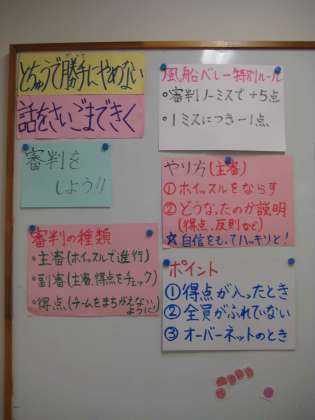 とちゅうで勝手にやめない
話をさいごまできく
審判を
しよう!!
審判の種類
・主審(ホイッスルで進行)
・副審(主審、得点をチェック)
・得点(チームをまちがえない
ように!)
風船バレー特別ルール
・審判ノーミスで+5点
・1ミスにつき-1点
やり方(主審)
①ホイッスルをならす
②どうなったのか説明
(得点、反則など)
☆自信をもってハッキリと!
ポイント
①得点が入ったとき
②全員がふれていない
③オーバーネットのとき